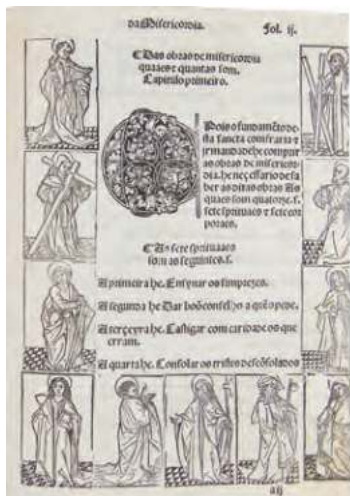 da Misericordia.
Fol. ij.
¶ Das obras de misericordia
quaaes e quantas som.
Capitulo primeiro.
Pois o fundamẽto de
sta sancta confraria ⁊
jrmandade he comprir
as obras de misericor
dia. he neçessario de sa
ber as ditas obras As
quaes som quatorze. s.
sete spirituaes ⁊ sete cor
poraes.
¶ As sete spirituaaes
som as seguintes. s.
A primeira he. Ensynar os simprezes.
A segunda he Dar boõ conselho a quẽ o pede.
A terçeyra he. Castigar com caridade os que
erram.
A quarta he. Consolar os tristes desconsolados
aij